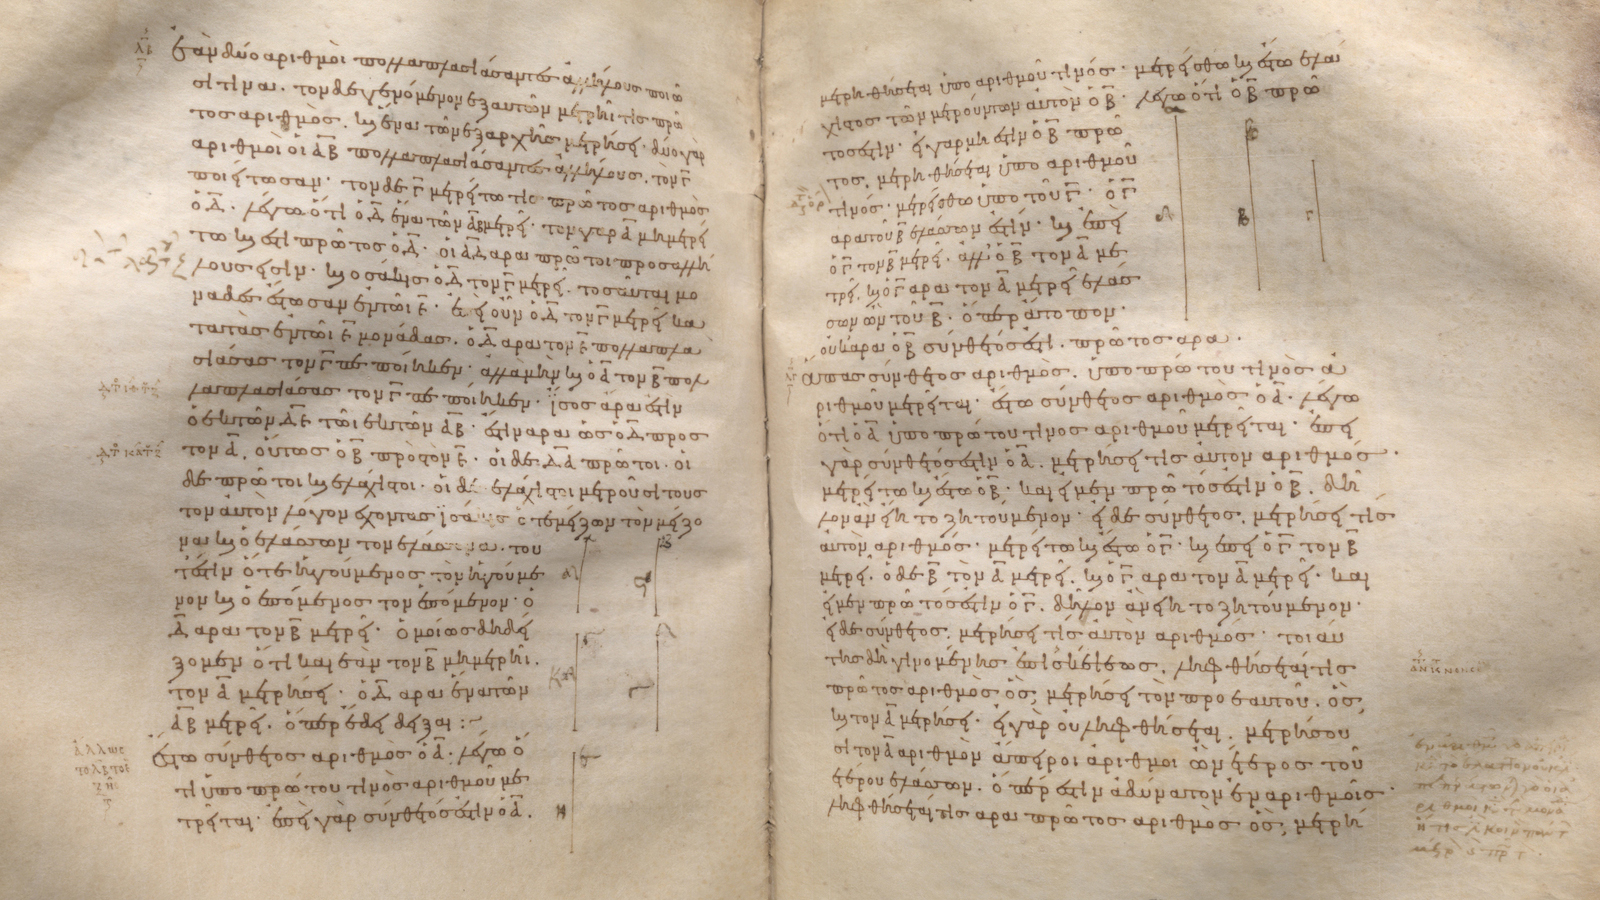 ἐὰν δύο ἀριθμοὶ πολλαπλασιάσαντες ἀλλήλους ποιῶ
σί τινα. τὸν δὲ γενόμενον ἐξ αὐτῶν μετρῆι τις πρῶ
τος ἀριθμὸς. καὶ ἕνα τῶν ἐξ ἀρχῆς μετρήσει. δύο γὰρ
ἀριθμοὶ οἱ ΑΒ πολλαπλασιάσαντες ἀλλήλους. τὸν Γ
ποιείτωσαν. τὸν δὲ Γ μετρείτω τις πρῶτος ἀριθμὸς
ὁ Δ. λέγω ὅτι ὁ Δ ἕνα τῶν ΑΒ μετρεῖ. τὸν γὰρ Α μὴ μετρεί
τω καὶ ἔστι πρῶτος ὁ Δ. οἱ ΑΔ ἄρα πρῶτοι πρὸς ἀλλή
λους εἰσίν. καὶ ὁσάκις ὁ Δ τὸν Γ μετρεῖ. τοσαῦται μο
νάδες ἔστωσαν ἐν τῶι Ε. ἐπεὶ οὖν ὁ Δ τὸν Γ μετρεῖ κα
τὰ τὰς ἐν τῶι Ε μονάδας. ὁ Δ ἄρα τὸν Ε πολλαπλα
σιάσας τὸν Γ πεποίηκεν. ἀλλὰ μὴν καὶ ὁ Α τὸν Β πολ
λαπλασιάσας τὸν Γ πεποίηκεν. ἴσος ἄρα ἐστὶν
ὁ ἐκ τῶν ΔΕ τῶι ἐκ τῶν ΑΒ. ἔστιν ἄρα ὡς ὁ Δ πρὸς
τὸν Α. οὕτως ὁ Β πρὸς τὸν Ε. οἱ δὲ ΔΑ πρῶτοι. οἱ
δὲ πρῶτοι καὶ ἐλάχιστοι. οἱ δὲ ἐλάχιστοι μετροῦσι τοὺς
τὸν αὐτὸν λόγον ἔχοντας ἰσάκις ὅ τε μείζων τὸν μείζο
να καὶ ὁ ἐλάσσων τὸν ἐλάσσονα. του
τέστιν ὅ τε ἡγούμενος τὸν ἡγούμε
νον καὶ ὁ ἑπόμενος τὸν ἑπόμενον. ὁ
Δ ἄρα τὸν Β μετρεῖ. ὁμοίως δὴ δεί
ξομεν ὅτι καὶ ἐὰν τὸν Β μὴ μετρῆι.
τὸν Α μετρήσει. ὁ Δ ἄρα ἕνα τῶν
ΑΒ μετρεῖ. ὅπερ ἔδει δεῖξαι :~
ἄλλως
ἔστω σύνθετος ἀριθμὸς ὁ Α. λέγω ὅ
τι ὑπὸ πρώτου τινὸς ἀριθμοῦ με
τρεῖται. ἐπεὶ γὰρ σύνθετός ἐστιν ὁ Α.
μετρηθήσεται ὑπὸ ἀριθμοῦ τινός. μετρείσθω καὶ ἔστω ἐλάχι
στος τῶν μετρούντων αὐτὸν ὁ Β. λέγω ὅτι ὁ Β πρῶ
τός ἐστιν. εἰ γὰρ μή ἐστιν ὁ Β πρῶ
τος. μετρηθήσεται ὑπὸ ἀριθμοῦ
τινός. μετρείσθω ὑπὸ τοῦ Γ. ὁ Γ
ἄρα τοῦ Β ἐλάσσων ἐστίν. καὶ ἐπεὶ
ὁ Γ τὸν Β μετρεῖ. ἀλλ' ὁ Β τὸν Α με
τρεῖ. καὶ ὁ Γ ἄρα τὸν Α μετρεῖ ἐλάσ
σων ὢν τοῦ Β. ὅπερ ἄτοπον.
οὐκ ἄρα ὁ Β σύνθετός ἐστι. πρῶτος ἄρα.
ἅπας σύνθετος ἀριθμὸς. ὑπὸ πρώτου τινὸς ἀ
ριθμοῦ μετρεῖται. ἔστω σύνθετος ἀριθμὸς ὁ Α. λέγω
ὅτι ὁ Α ὑπὸ πρώτου τινὸς ἀριθμοῦ μετρεῖται. ἐπεὶ
γὰρ σύνθετός ἐστιν ὁ Α. μετρήσει τις αὐτὸν ἀριθμός.
μετρείτω καὶ ἔστω ὁ Β. καὶ εἰ μὲν πρῶτός ἐστιν ὁ Β. δῆ
λον ἂν εἴη τὸ ζητούμενον. εἰ δὲ σύνθετος. μετρήσει τις
αὐτὸν ἀριθμός. μετρείτω καὶ ἔστω ὁ Γ. καὶ ἐπεὶ ὁ Γ τὸν Β
μετρεῖ. ὁ δὲ Β τὸν Α μετρεῖ. καὶ ὁ Γ ἄρα τὸν Α μετρεῖ. καὶ
εἰ μὲν πρῶτός ἐστιν ὁ Γ. δῆλον ἂν εἴη τὸ ζητούμενον.
εἰ δὲ σύνθετος. μετρήσει τις αὐτὸν ἀριθμός. τοιαύ
της δὴ γινομένης ἐπισκέψεως. ληφθήσεταί τις
πρῶτος ἀριθμὸς ὃς, μετρήσει τὸν πρὸ ἑαυτοῦ. ὃς,
καὶ τὸν Α μετρήσει. εἰ γὰρ οὐ ληφθήσεται. μετρήσου
σι τὸν Α ἀριθμὸν ἄπειροι ἀριθμοὶ ὧν ἕτερος τοῦ
ἑτέρου ἐλάσσων. ὅπερ ἐστὶν ἀδύνατον ἐν ἀριθμοῖς.
ληφθήσεταί τις ἄρα πρῶτος ἀριθμὸς ὃς, μετρή